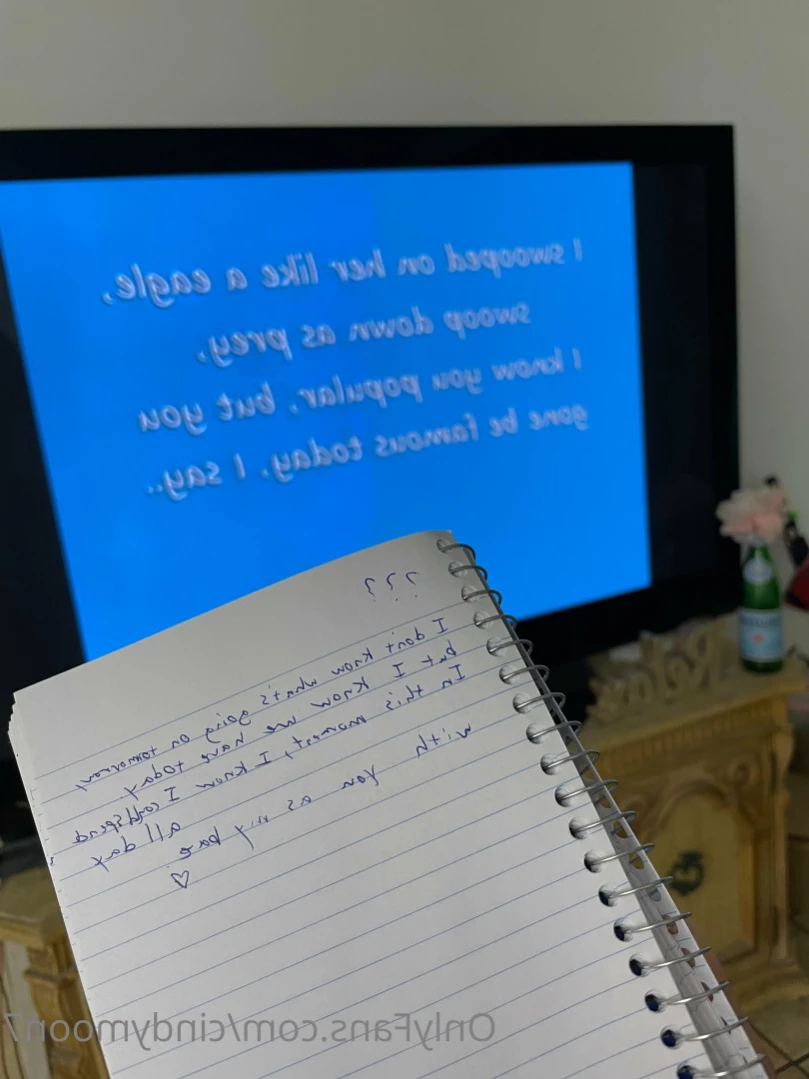 I swooped on her like a eagle,
swoop down as prey.
I know you popular, but you
gone be famous today, I say..
???
I don't know what's going on tomorrow
but I know we have today
In this moment, I know I could spend
all day
with you as my bae
♡
Relax
OnlyFans.com/cindymoon7